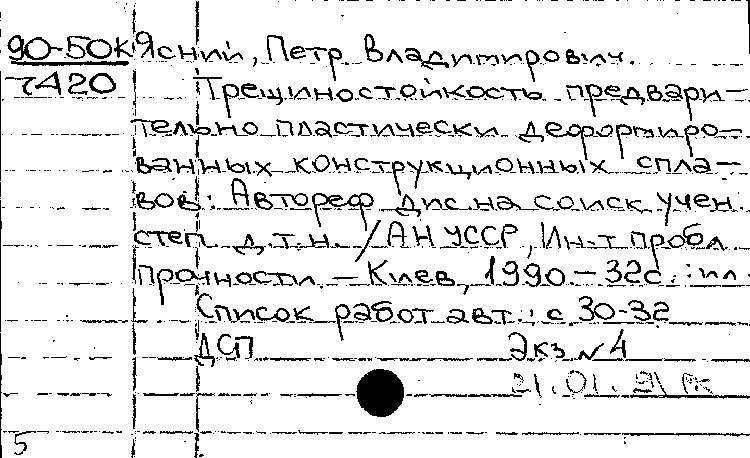 90-50К Ясний, Петр Владимирович.
7420 Трещиностойкость предвари-
тельно пластически деформиро-
ванных конструкционных спла-
вов: Автореф дис на соиск учен
степ д.т.н. /АН УССР, Ин-т пробл
прочности. – Киев, 1990. – 32с.: ил.
Список работ авт.: с 30-32
ДСП Экз N 4
21.01.91 РК
5